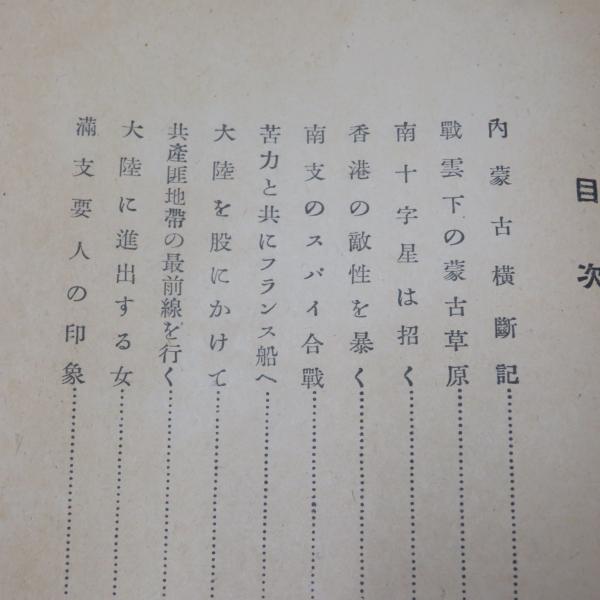 目次
內蒙古橫斷記
戰雲下の蒙古草原
南十字星は招く
香港の敵性を暴く
南支のスパイ合戰
苦力と共にフランス船へ
大陸を股にかけて
共產匪地帶の最前線を行く
大陸に進出する女
滿支要人の印象